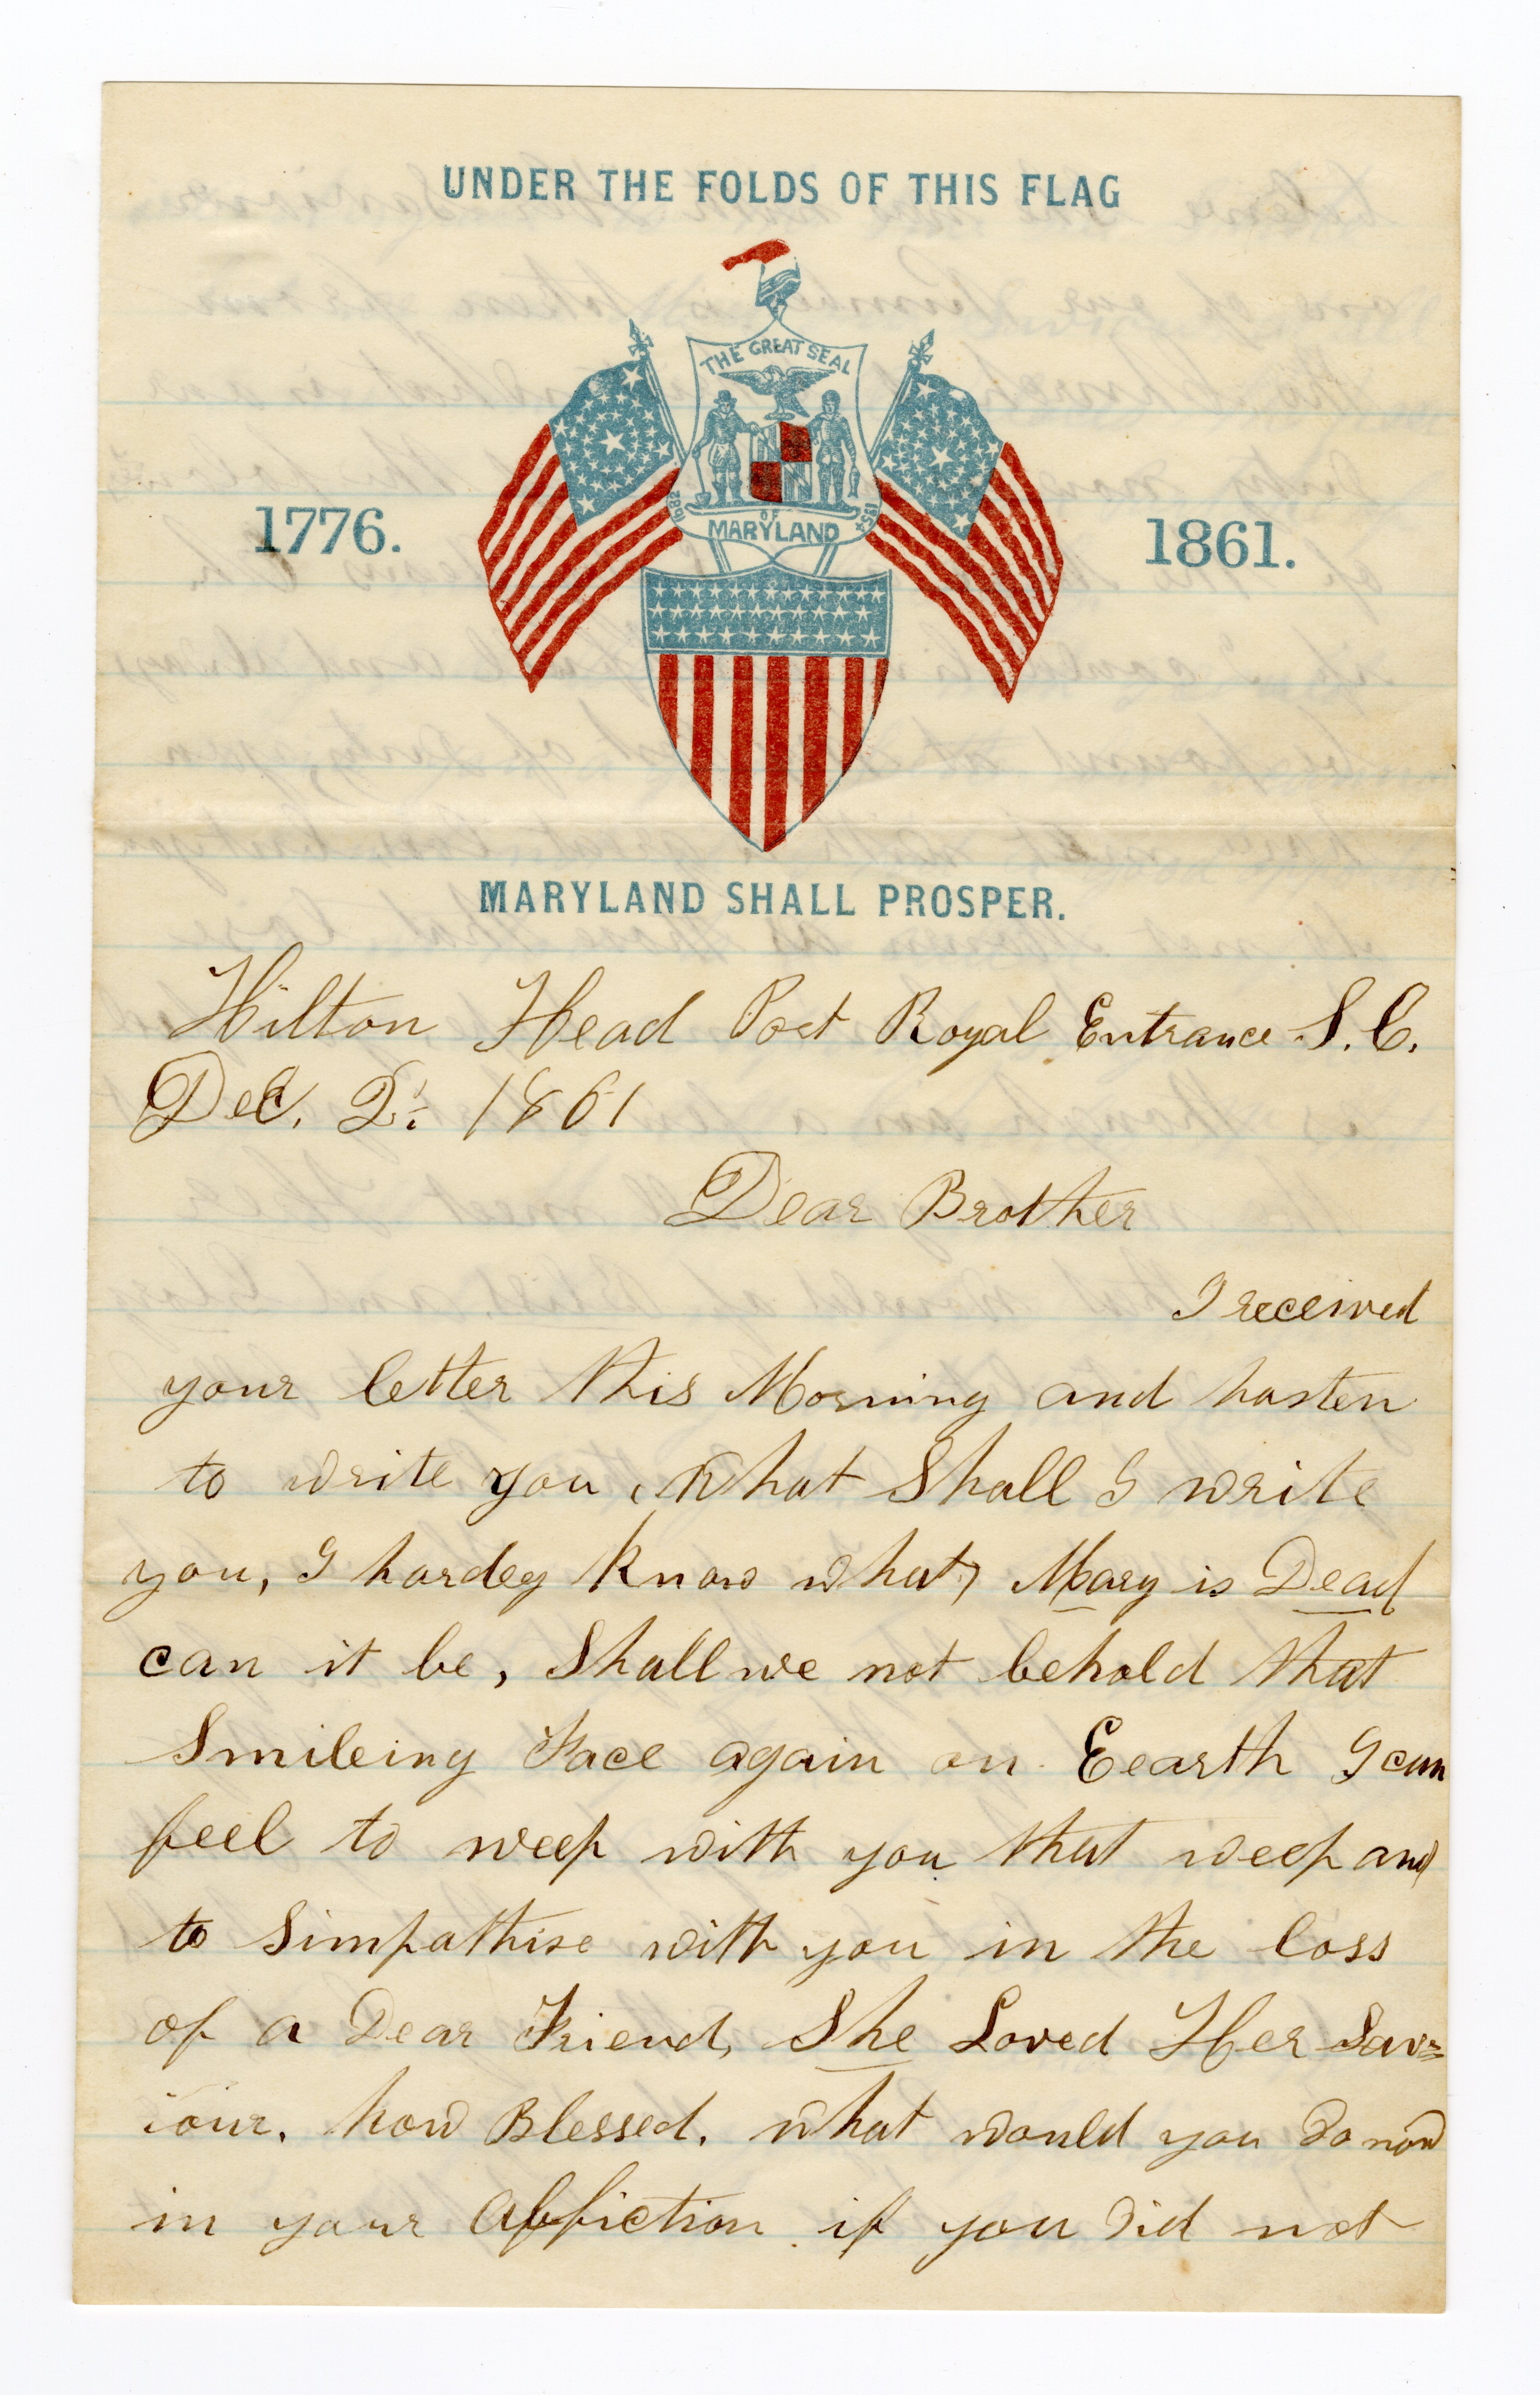 UNDER THE FOLDS OF THIS FLAG
THE GREAT SEAL
1776.
1861.
1632 1854
OF
MARYLAND
MARYLAND SHALL PROSPER.
Hilton Head Port Royal Entrance S.C.
Dec. 2. 1861
Dear Brother
I received
your letter this Morning and hasten
to write you, What Shall I write
you, I hardey know what, Mary is Dead
can it be, Shall we not behold that
Smileing Face again on Eearth I can
feel to weep with you that weep and
to Simpathise with you in the loss
of a Dear Friend, She Loved Her Sav=
iour. how Blessed. what would you do now
in your Affiction if you did not